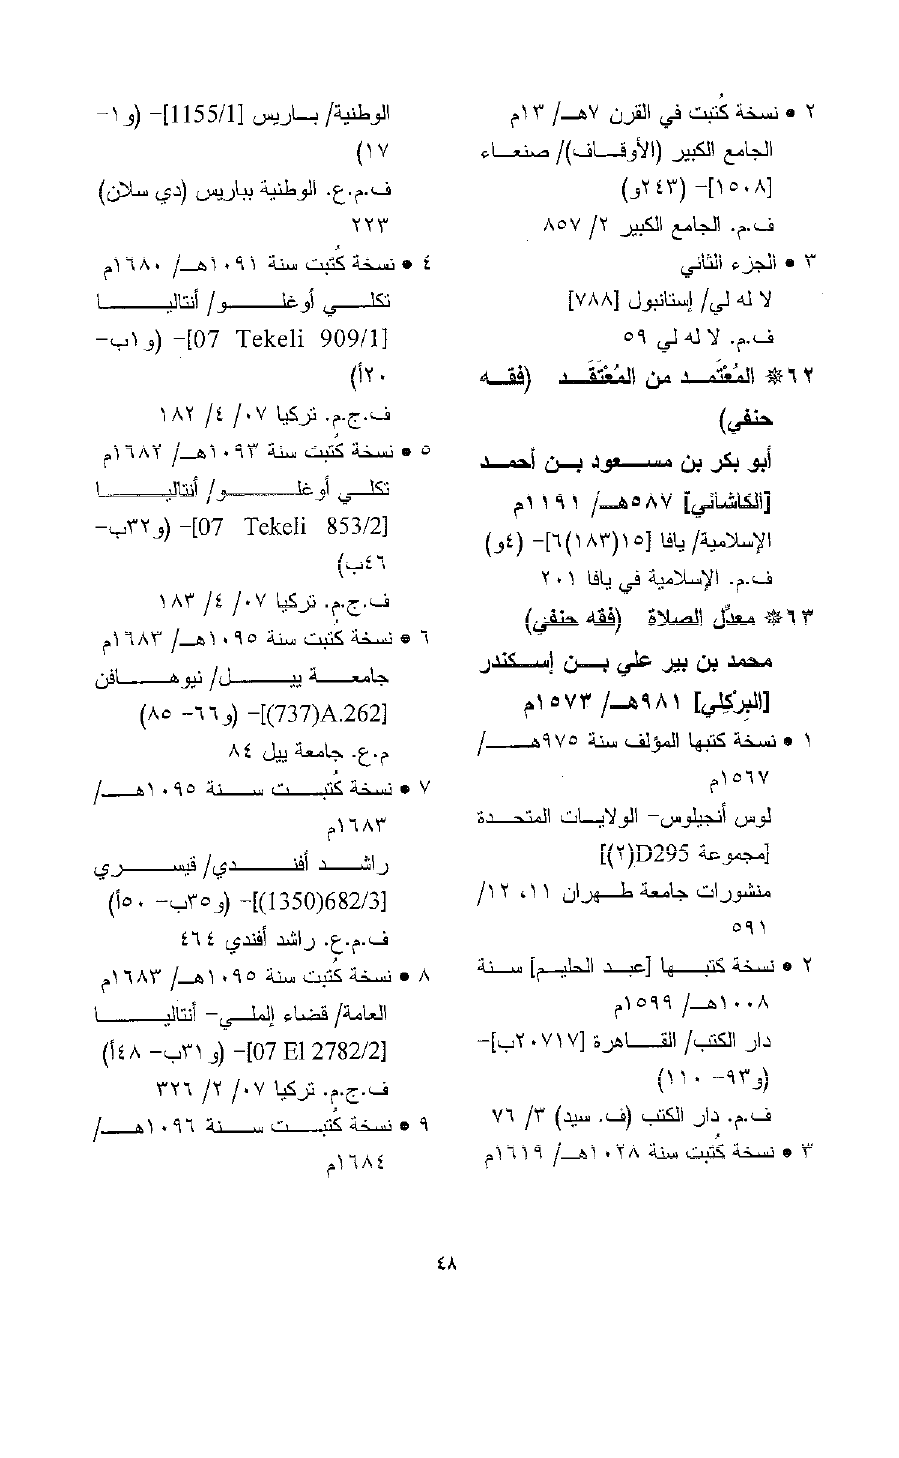 ٢ • نسخة كُتبت في القرن ٧هـ/ ١٣م
الجامع الكبير (الأوقاف)/ صنعاء
[١٥٠٨]- (٢٤٣و)
ف.م. الجامع الكبير ٢/ ٨٥٧
٣ • الجزء الثاني
لا له لي/ إستانبول [٧٨٨]
ف.م. لا له لي ٥٩
٦٢* المُعْتَمد من المُعْتَقَد (فقه
حنفي)
أبو بكر بن مسعود بن أحمد
[الكاشاني] ٥٨٧هـ/ ١١٩١م
الإسلامية/ يافا [١٥(١٨٣)٦]- (٤و)
ف.م. الإسلامية في يافا ٢٠١
٦٣* معدِّل الصلاة (فقه حنفي)
محمد بن بير علي بن إسكندر
[البِرْكلي] ٩٨١هـ/ ١٥٧٣م
١ • نسخة كتبها المؤلف سنة ٩٧٥هـ/
١٥٦٧م
لوس أنجيلوس- الولايات المتحدة
[مجموعة D295(٢)]
منشورات جامعة طهران ١١، ١٢/
٥٩١
٢ • نسخة كتبها [عبد الحليم] سنة
١٠٠٨هـ/ ١٥٩٩م
دار الكتب/ القاهرة [٢٠٧١٧ب]-
(و٩٣- ١١٠)
ف.م. دار الكتب (ف. سيد) ٣/ ٧٦
٣ • نسخة كُتبت سنة ١٠٢٨هـ/ ١٦١٩م
الوطنية/ باريس [1155/1]- (و١-
١٧)
ف.م.ع. الوطنية بباريس (دي سلان)
٢٢٣
٤ • نسخة كُتبت سنة ١٠٩١هـ/ ١٦٨٠م
تكلي أوغلو/ أنتاليا
[07 Tekeli 909/1]- (و١ب-
٢٠أ)
ف.ج.م. تركيا ٠٧/ ٤/ ١٨٢
٥ • نسخة كُتبت سنة ١٠٩٣هـ/ ١٦٨٢م
تكلي أوغلو/ أنتاليا
[07 Tekeli 853/2]- (و٣٢ب-
٤٦ب)
ف.ج.م. تركيا ٠٧/ ٤/ ١٨٣
٦ • نسخة كُتبت سنة ١٠٩٥هـ/ ١٦٨٣م
جامعة ييل/ نيوهافن
[A.262(737)]- (و٦٦- ٨٥)
م.ع. جامعة ييل ٨٤
٧ • نسخة كُتبت سنة ١٠٩٥هـ/
١٦٨٣م
راشد أفندي/ قيسري
[682/3(1350)]- (و٣٥ب- ٥٠أ)
ف.م.ع. راشد أفندي ٤٦٤
٨ • نسخة كُتبت سنة ١٠٩٥هـ/ ١٦٨٣م
العامة/ قضاء إلملي- أنتاليا
[07 El 2782/2]- (و٣١ب- ٤٨أ)
ف.ج.م. تركيا ٠٧/ ٢/ ٣٢٦
٩ • نسخة كُتبت سنة ١٠٩٦هـ/
١٦٨٤م
٤٨